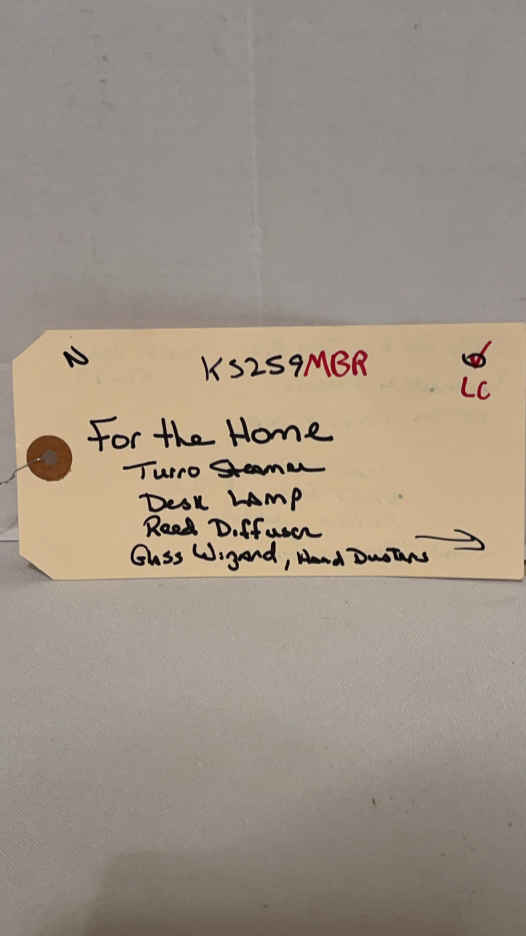 N
KS259MBR
LC
For the Home
Turro Steamer
Desk LAmp
Reed Diffuser
Glass Wizard, Hand Dusters